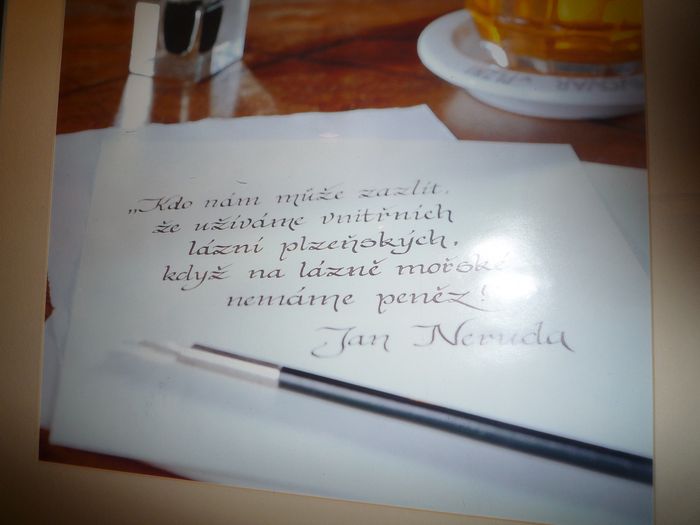 „Kdo nám může zazlít,
že užíváme vnitřních
lázní plzeňských,
když na lázně mořské
nemáme peněz!
Jan Neruda